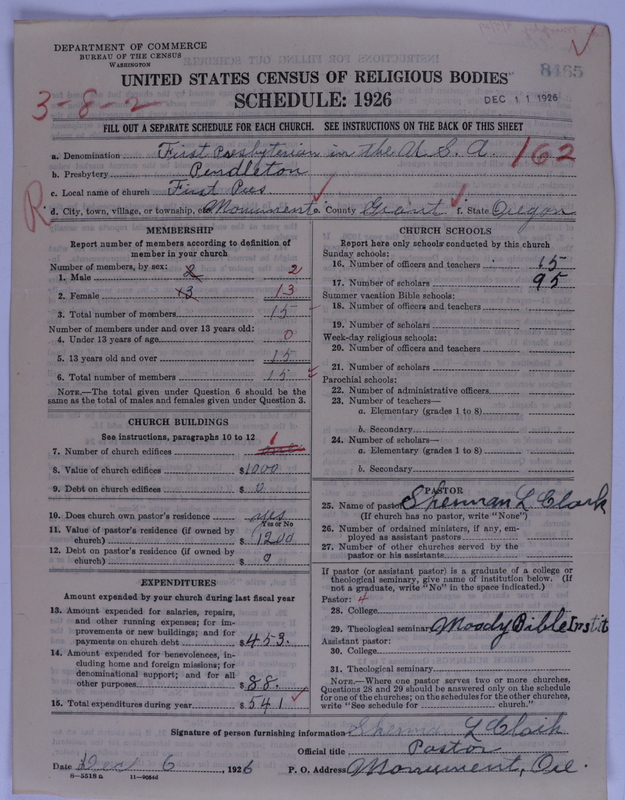 DEPARTMENT OF COMMERCE
BUREAU OF THE CENSUS
WASHINGTON
UNITED STATES CENSUS OF RELIGIOUS BODIES
SCHEDULE: 1926
8465
DEC 11 1926
3-8-2
FILL OUT A SEPARATE SCHEDULE FOR EACH CHURCH. SEE INSTRUCTIONS ON THE BACK OF THIS SHEET
a. Denomination First Presbyterian in the U. S. A. 162
b. Presbytery Pendleton
c. Local name of church First Pres
R
d. City, town, village, or township, etc. Monument e. County Grant f. State Oregon
MEMBERSHIP
Report number of members according to definition of
member in your church
Number of members, by sex:
1. Male 2 2
2. Female 13 13
3. Total number of members 15
Number of members under and over 13 years old:
4. Under 13 years of age 0
5. 13 years old and over 15
6. Total number of members 15
NOTE.—The total given under Question 6 should be
same as the total of males and females given under Question 3.
CHURCH BUILDINGS
See instructions, paragraphs 10 to 12
7. Number of church edifices 1
8. Value of church edifices $1000
9. Debt on church edifices $ 0
10. Does church own pastor's residence yes
Yes or No
11. Value of pastor's residence (if owned by
church) $ 1200
12. Debt on pastor's residence (if owned by
church) $ 0
EXPENDITURES
Amount expended by your church during last fiscal year
13. Amount expended for salaries, repairs,
and other running expenses; for im-
provements or new buildings; and for
payments on church debt $453.
14. Amount expended for benevolences, in-
cluding home and foreign missions; for
denominational support; and for all
other purposes $88.
15. Total expenditures during year $541
CHURCH SCHOOLS
Report here only schools conducted by this church
Sunday schools:
16. Number of officers and teachers 15
17. Number of scholars 95
Summer vacation Bible schools:
18. Number of officers and teachers
19. Number of scholars
Week-day religious schools:
20. Number of officers and teachers
21. Number of scholars
Parochial schools:
22. Number of administrative officers
23. Number of teachers—
a. Elementary (grades 1 to 8)
b. Secondary
24. Number of scholars—
a. Elementary (grades 1 to 8)
b. Secondary
PASTOR
25. Name of pastor Sherman L Clark
(If church has no pastor, write "None")
26. Number of ordained ministers, if any, em-
ployed as assistant pastors
27. Number of other churches served by the
pastor or his assistants
If pastor (or assistant pastor) is a graduate of a college or
theological seminary, give name of institution below. (If
not a graduate, write "No" in the space indicated.)
Pastor: 4
28. College
29. Theological seminary Moody Bible Instit
Assistant pastor:
30. College
31. Theological seminary
NOTE.—Where one pastor serves two or more churches,
Questions 28 and 29 should be answered only on the schedule
for one of the churches; on the schedules for the other churches,
write "See schedule for church."
Signature of person furnishing information Sherman L Clark
Official title Pastor
Date Dec 6, 1926 P. O. Address Monument, Ore.
8—5518a 11—9084d